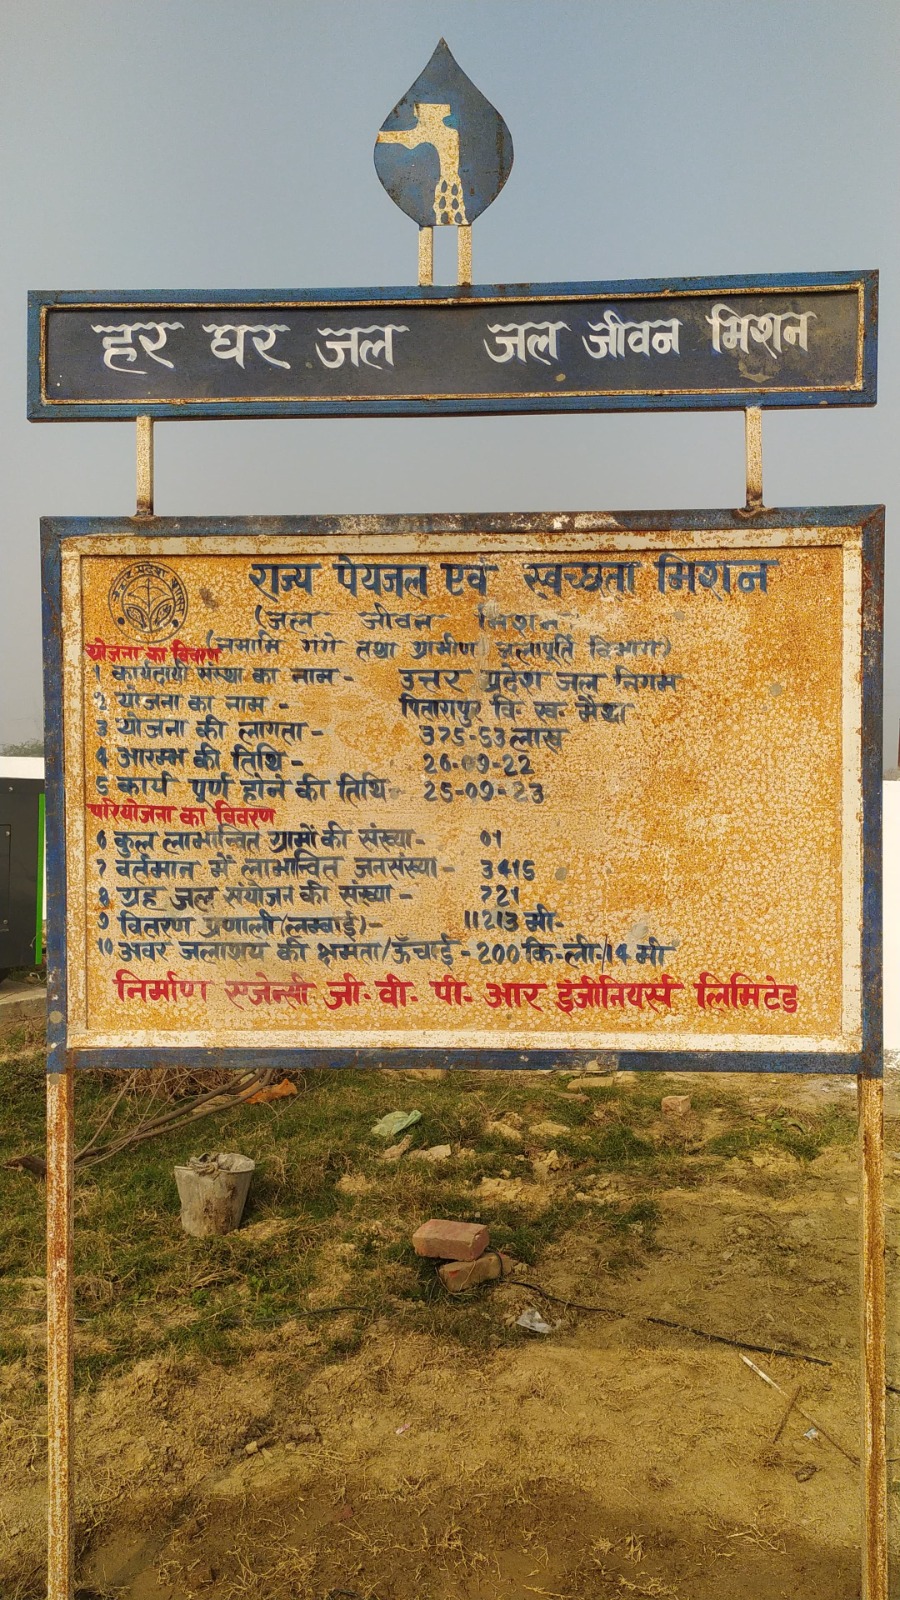 हर घर जल जल जीवन मिशन
राज्य पेयजल एवं स्वच्छता मिशन
(जल जीवन मिशन
(नमामि गंगे तथा ग्रामीण जलापूर्ति विभाग)
योजना का विवरण
1 कार्यदायी संस्था का नाम - उत्तर प्रदेश जल निगम
2 योजना का नाम - वि. ख. मैथा
3 योजना की लागत - 375-53 लाख
4 आरम्भ की तिथि - 26-09-22
5 कार्य पूर्ण होने की तिथि - 25-09-23
परियोजना का विवरण
6 कुल लाभान्वित ग्रामों की संख्या- 01
7 वर्तमान में लाभान्वित जनसंख्या - 3415
8 ग्रह जल संयोजन की संख्या - 721
9 वितरण प्रणाली (लम्बाई)- 11213 मी-
10 अवर जलाशय की क्षमता/ऊँचाई - 200 कि-ली-/14 मी
निर्माण एजेन्सी जी- वी- पी- आर इंजीनियर्स लिमिटेड